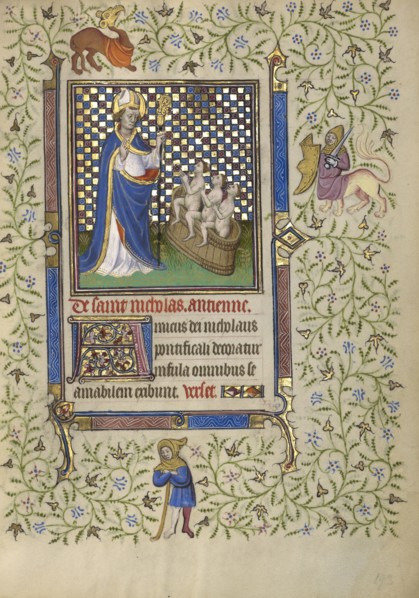 De saint nicholas. antienne.
Amicus dei nicholaus
pontificali decoratur
insula omnibus se
amabilem exibunt. verset.